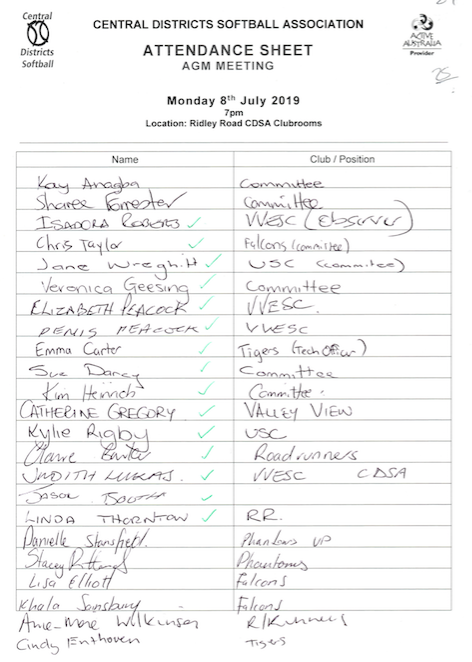 Central
Districts
Softball
CENTRAL DISTRICTS SOFTBALL ASSOCIATION
ATTENDANCE SHEET
AGM MEETING
ACTIVE
AUSTRALIA
Provider
25
Monday 8th July 2019
7pm
Location: Ridley Road CDSA Clubrooms
Name Club / Position
Kay Anagba Committee
Sharee Forrester Committee
ISADORA ROGERS ✓ VVESC (Observer)
Chris Taylor ✓ Falcons (committee)
Jane Wreghitt ✓ USC (commitee)
Veronica Geesing ✓ Committee
ELIZABETH PEACOCK ✓ VVESC.
DENIS PEACOCK ✓ VVESC
Emma Carter ✓ Tigers (Tech Officer)
Sue Darcy ✓ Committee
Kim Heinrich ✓ Committee
CATHERINE GREGORY ✓ VALLEY VIEW
Kylie Rigby ✓ USC
✓ Roadrunners
JUDITH LUKAS. ✓ VVESC CDSA
JASON BOOTH ✓
LINDA THORNTON ✓ RR.
Danielle Stansfield. Phantoms VP
Stacey Phantoms
Lisa Elliott Falcons
Khala Sainsbury Falcons
Anne-Marie Wilkinson R/Runners
Cindy Enthoven Tigers